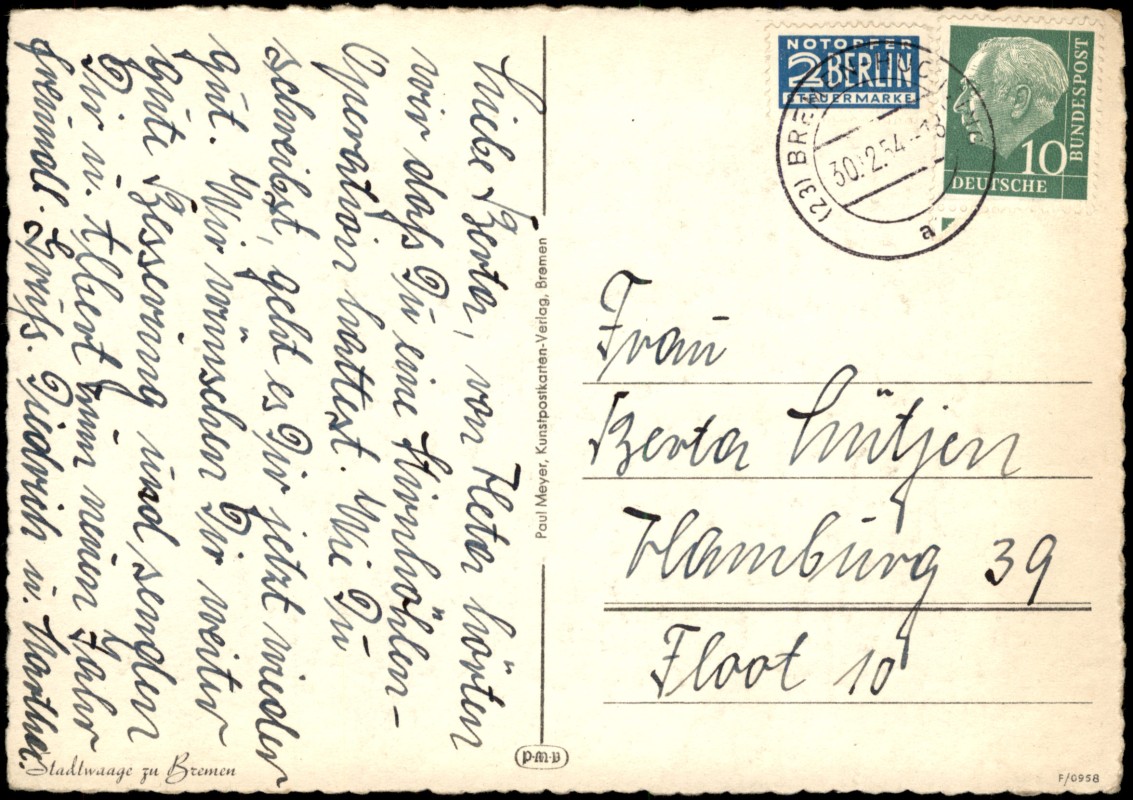 Liebe Berta, von Heta hörten
wir daß Du eine Stirnhöhlen-
Operation hattest. Wie Du
schreibst, geht es Dir jetzt wieder
gut. Wir wünschen Dir weiter
gute Besserung und senden
Dir u. Albert zum neuen Jahr
freundl. Grüß. Diedrich u. Marthe.
Stadtwaage zu Bremen
Paul Meyer, Kunstpostkarten-Verlag, Bremen
p·m·v
NOTOPFER
2 BERLIN
STEUERMARKE
10
DEUTSCHE
BUNDESPOST
(23) BREMEN
30.12.54.-18
a
Frau
Berta Lütjen
Hamburg 39
Floot 10
F/0958